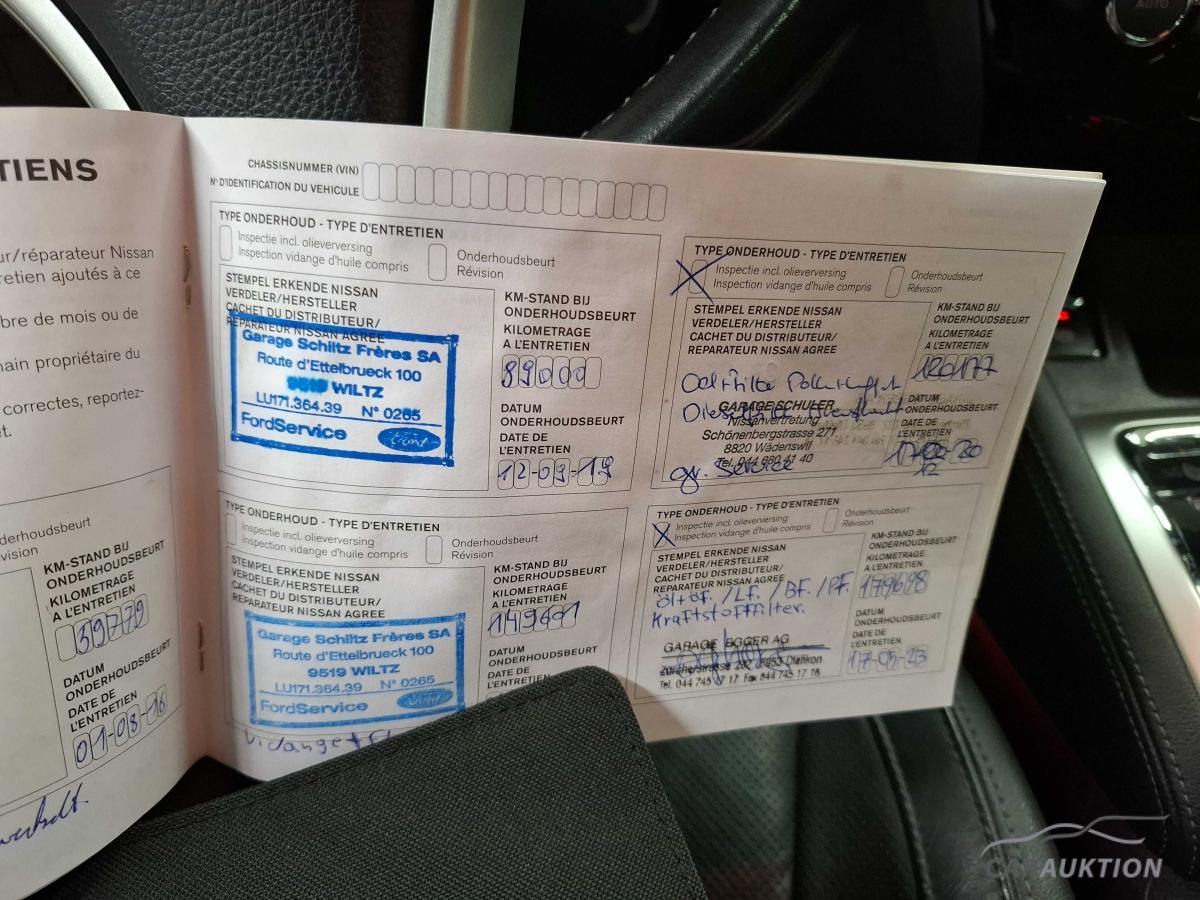 TIENS
ur/réparateur Nissan
retien ajoutés à ce
bre de mois ou de
main propriétaire du
correctes, reportez-
et.
nderhoudsbeurt
vision
KM-STAND BIJ
ONDERHOUDSBEURT
KILOMETRAGE
A L'ENTRETIEN
39779
DATUM
ONDERHOUDSBEURT
DATE DE
L'ENTRETIEN
01-08-16
CHASSISNUMMER (VIN)
N° D'IDENTIFICATION DU VEHICULE
TYPE ONDERHOUD - TYPE D'ENTRETIEN
Inspectie incl. olieverversing
Inspection vidange d'huile compris
Onderhoudsbeurt
Révision
STEMPEL ERKENDE NISSAN
VERDELER/HERSTELLER
CACHET DU DISTRIBUTEUR/
REPARATEUR NISSAN AGREE
Garage Schiltz Frères SA
Route d'Ettelbrueck 100
9519 WILTZ
LU171.364.39 N° 0265
FordService
Ford
KM-STAND BIJ
ONDERHOUDSBEURT
KILOMETRAGE
A L'ENTRETIEN
89000
DATUM
ONDERHOUDSBEURT
DATE DE
L'ENTRETIEN
12-09-19
TYPE ONDERHOUD - TYPE D'ENTRETIEN
Inspectie incl. olieverversing
Inspection vidange d'huile compris
Onderhoudsbeurt
Révision
STEMPEL ERKENDE NISSAN
VERDELER/HERSTELLER
CACHET DU DISTRIBUTEUR/
REPARATEUR NISSAN AGREE
Garage Schiltz Frères SA
Route d'Ettelbrueck 100
9519 WILTZ
LU171.364.39 N° 0265
FordService
Ford
Vidange +
KM-STAND BIJ
ONDERHOUDSBEURT
KILOMETRAGE
A L'ENTRETIEN
DATUM
ONDERHOUDSBEURT
DATE DE
L'ENTRETIEN
TYPE ONDERHOUD - TYPE D'ENTRETIEN
Inspectie incl. olieverversing
Inspection vidange d'huile compris
Onderhoudsbeurt
Révision
STEMPEL ERKENDE NISSAN
VERDELER/HERSTELLER
CACHET DU DISTRIBUTEUR/
REPARATEUR NISSAN AGREE
GARAGE SCHULER
Nissanvertretung
Schönenbergstrasse 271
8820 Wädenswil
Tel. 044 680 41 40
gr. Service
KM-STAND BIJ
ONDERHOUDSBEURT
KILOMETRAGE
A L'ENTRETIEN
120177
DATUM
ONDERHOUDSBEURT
DATE DE
L'ENTRETIEN
12
TYPE ONDERHOUD - TYPE D'ENTRETIEN
Inspectie incl. olieverversing
Inspection vidange d'huile compris
Onderhoudsbeurt
Révision
STEMPEL ERKENDE NISSAN
VERDELER/HERSTELLER
CACHET DU DISTRIBUTEUR/
REPARATEUR NISSAN AGREE
Öl+öf. /LF. /BF. /PF.
Kraftstofffilter.
GARAGE EGGER AG
Zürcherstrasse 8953 Dietikon
Tel. 044 745 17 17 Fax 044 745 17 18
KM-STAND BIJ
ONDERHOUDSBEURT
KILOMETRAGE
A L'ENTRETIEN
179698
DATUM
ONDERHOUDSBEURT
DATE DE
L'ENTRETIEN
17-05-23
AUTO
CAR AUKTION